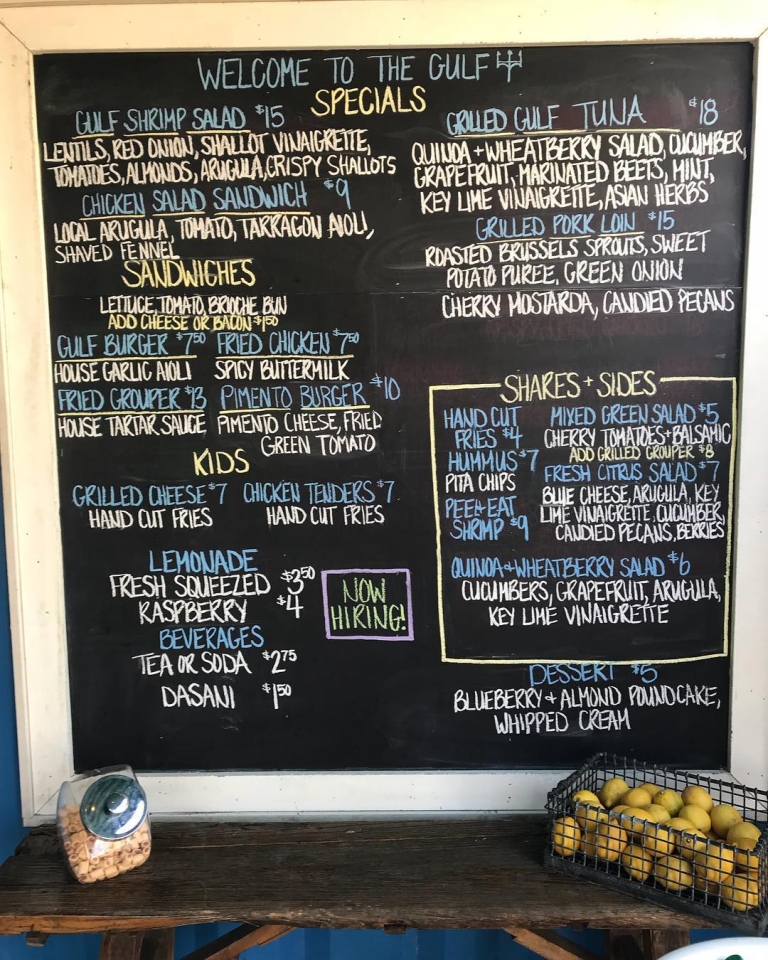 WELCOME TO THE GULF
SPECIALS
GULF SHRIMP SALAD $15
LENTILS, RED ONION, SHALLOT VINAIGRETTE,
TOMATOES, ALMONDS, ARUGULA, CRISPY SHALLOTS
CHICKEN SALAD SANDWICH $9
LOCAL ARUGULA, TOMATO, TARRAGON AIOLI,
SHAVED FENNEL
GRILLED GULF TUNA $18
QUINOA + WHEATBERRY SALAD, CUCUMBER,
GRAPEFRUIT, MARINATED BEETS, MINT,
KEY LIME VINAIGRETTE, ASIAN HERBS
GRILLED PORK LOIN $15
ROASTED BRUSSELS SPROUTS, SWEET
POTATO PUREE, GREEN ONION
CHERRY MOSTARDA, CANDIED PECANS
SANDWICHES
LETTUCE, TOMATO, BRIOCHE BUN
ADD CHEESE OR BACON $1.50
GULF BURGER $7.50 FRIED CHICKEN $7.50
HOUSE GARLIC AIOLI SPICY BUTTERMILK
FRIED GROUPER $13 PIMENTO BURGER $10
HOUSE TARTAR SAUCE PIMENTO CHEESE, FRIED
GREEN TOMATO
KIDS
GRILLED CHEESE $7 CHICKEN TENDERS $7
HAND CUT FRIES HAND CUT FRIES
LEMONADE
FRESH SQUEEZED $3.50
RASPBERRY $4
BEVERAGES
TEA OR SODA $2.75
DASANI $1.50
NOW
HIRING!
SHARES + SIDES
HAND CUT
FRIES $4
HUMMUS $7
PITA CHIPS
PEEL+EAT
SHRIMP $9
MIXED GREEN SALAD $5
CHERRY TOMATOES + BALSAMIC
ADD GRILLED GROUPER $8
FRESH CITRUS SALAD $7
BLUE CHEESE, ARUGULA, KEY
LIME VINAIGRETTE, CUCUMBER,
CANDIED PECANS, BERRIES
QUINOA + WHEATBERRY SALAD $6
CUCUMBERS, GRAPEFRUIT, ARUGULA,
KEY LIME VINAIGRETTE
DESSERT $5
BLUEBERRY + ALMOND POUNDCAKE,
WHIPPED CREAM